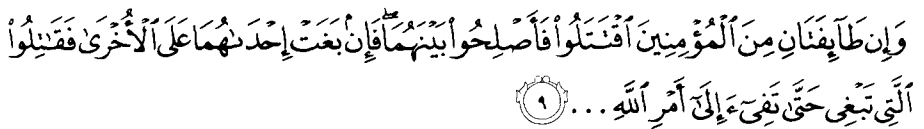 وَإِن طَآئِفَتَانِ مِنَ ٱلْمُؤْمِنِينَ ٱقْتَتَلُواْ فَأَصْلِحُواْ بَيْنَهُمَا ۖ فَإِنۢ بَغَتْ إِحْدَىٰهُمَا عَلَى ٱلْأُخْرَىٰ فَقَٰتِلُواْ
ٱلَّتِى تَبْغِى حَتَّىٰ تَفِىٓءَ إِلَىٰٓ أَمْرِ ٱللَّهِ ... ٩